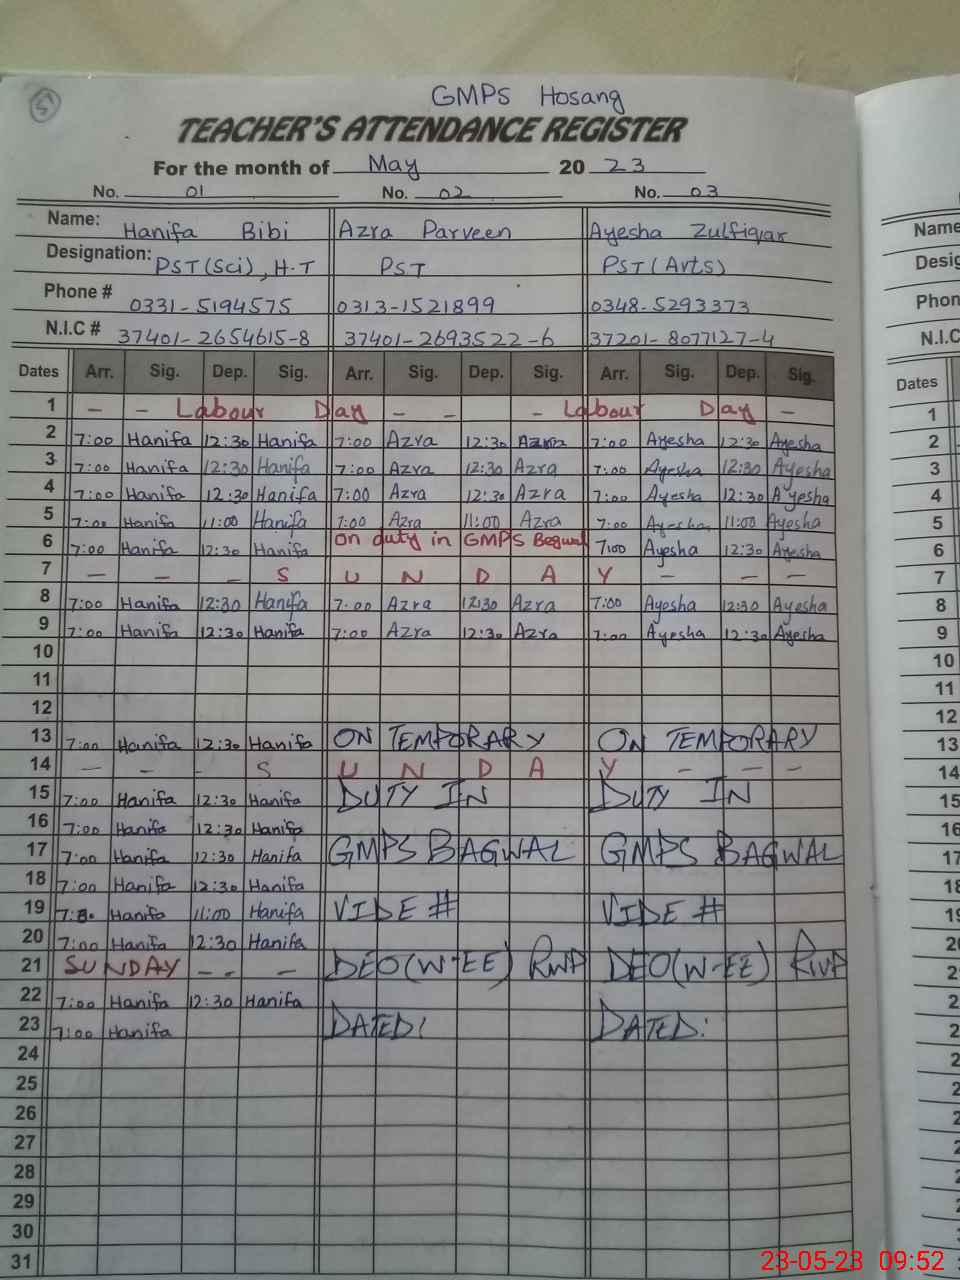 51
GMPS Hosang
TEACHER'S ATTENDANCE REGISTER
For the month of May 2023
No. 01 No. 02 No. 03
Name: Hanifa Bibi Azra Parveen Ayesha Zulfiqar Name
Designation: PST(Sci), H.T PST PST (Arts) Desig
Phone # 0331-5194575 0313-1521899 0348-5293373 Phon
N.I.C # 37401-2654615-8 37401-2693522-6 37201-8077127-4 N.I.C
Dates Arr. Sig. Dep. Sig. Arr. Sig. Dep. Sig. Arr. Sig. Dep. Sig. Dates
1 - - Labour Day - - - Labour Day - 1
2 7:00 Hanifa 12:30 Hanifa 7:00 Azra 12:30 Azra 7:00 Ayesha 12:30 Ayesha 2
3 7:00 Hanifa 12:30 Hanifa 7:00 Azra 12:30 Azra 7:00 Ayesha 12:30 Ayesha 3
4 7:00 Hanifa 12:30 Hanifa 7:00 Azra 12:30 Azra 7:00 Ayesha 12:30 Ayesha 4
5 7:00 Hanifa 11:00 Hanifa 7:00 Azra 11:00 Azra 7:00 Ayesha 11:00 Ayesha 5
6 7:00 Hanifa 12:30 Hanifa on duty in GMPS Bagwal 7:00 Ayesha 12:30 Ayesha 6
7 - - - S U N D A Y - - - 7
8 7:00 Hanifa 12:30 Hanifa 7:00 Azra 12:30 Azra 7:00 Ayesha 12:30 Ayesha 8
9 7:00 Hanifa 12:30 Hanifa 7:00 Azra 12:30 Azra 7:00 Ayesha 12:30 Ayesha 9
10 10
11 11
12 12
13 7:00 Hanifa 12:30 Hanifa ON TEMPORARY ON TEMPORARY 13
14 - - - S U N D A Y - - - 14
15 7:00 Hanifa 12:30 Hanifa DUTY IN DUTY IN 15
16 7:00 Hanifa 12:30 Hanifa 16
17 7:00 Hanifa 12:30 Hanifa GMPS BAGWAL GMPS BAGWAL 17
18 7:00 Hanifa 12:30 Hanifa 18
19 Hanifa 11:00 Hanifa VIDE # VIDE # 19
20 7:00 Hanifa 12:30 Hanifa 20
21 SUNDAY - - - DEO(W-EE) RWP DEO(W-EE) RWP 2
22 7:00 Hanifa 12:30 Hanifa 2
23 7:00 Hanifa DATED: DATED: 2
24 2
25 2
26 2
27 2
28 2
29 2
30
31
23-05-23 09:52